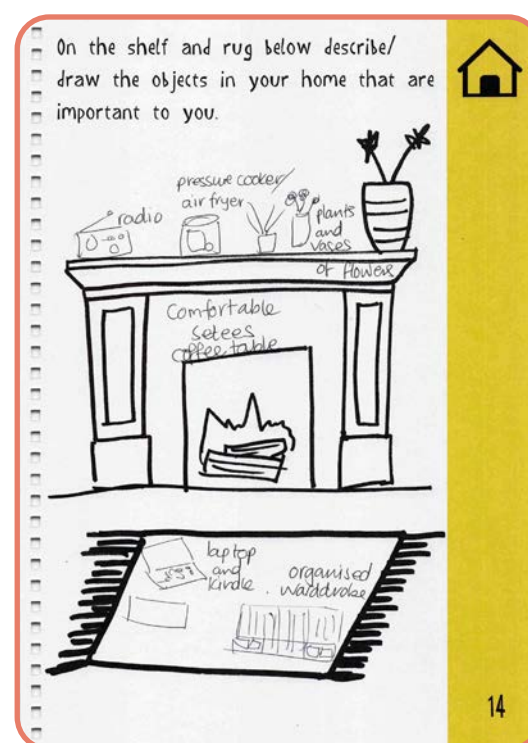 On the shelf and rug below describe/
draw the objects in your home that are
important to you.
pressure cooker/
air fryer
radio
plants
and
vases
of flowers
Comfortable
setees
coffee table
laptop
and
kindle
organised
warddrobe
14